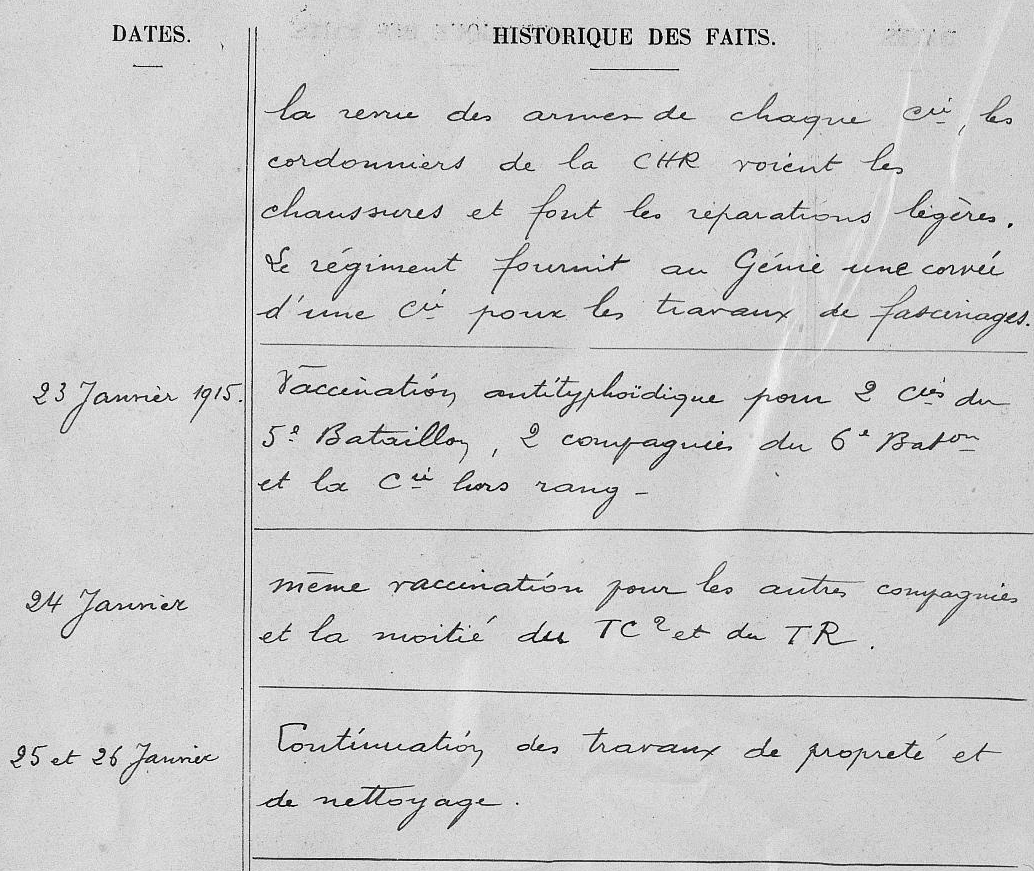 DATES.
HISTORIQUE DES FAITS.
la revue des armes de chaque Cie, les
cordonniers de la CHR voient les
chaussures et font les réparations légères.
Le régiment fournit au Génie une corvée
d'une Cie pour les travaux de fascinages.
23 Janvier 1915.
Vaccination antityphoïdique pour 2 Cies du
5e Bataillon, 2 compagnies du 6e Baton
et la Cie hors rang -
24 Janvier
même vaccination pour les autres compagnies
et la moitié du TC2 et du TR.
25 et 26 Janvier
Continuation des travaux de propreté et
de nettoyage.